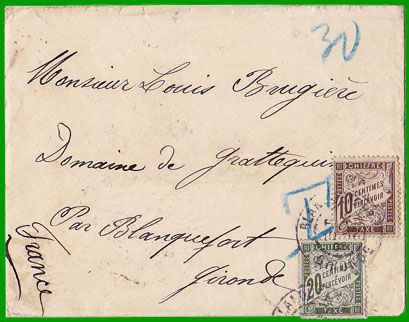 30
Monsieur Louis Brugière
Domaine de Grattequina
Par Blanquefort
Gironde
France
T
CHIFFRE
10 CENTIMES
À PERCEVOIR
TAXE
CHIFFRE
20 CENTIMES
À PERCEVOIR
TAXE